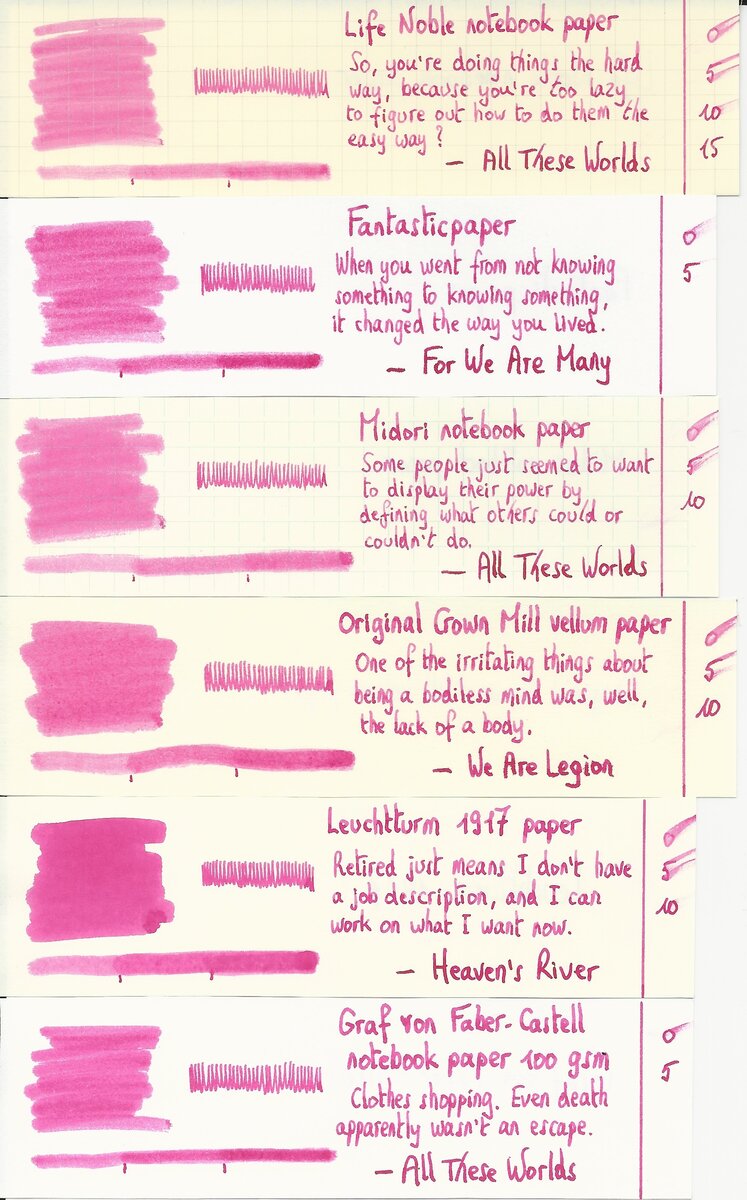 Life Noble notebook paper
So, you're doing things the hard
way, because you're too lazy
to figure out how to do them the
easy way?
— All These Worlds
0
5
10
15
Fantasticpaper
When you went from not knowing
something to knowing something,
it changed the way you lived.
— For We Are Many
0
5
Midori notebook paper
Some people just seemed to want
to display their power by
defining what others could or
couldn't do.
— All These Worlds
0
5
10
Original Crown Mill vellum paper
One of the irritating things about
being a bodiless mind was, well,
the lack of a body.
— We Are Legion
0
5
10
Leuchtturm 1917 paper
Retired just means I don't have
a job description, and I can
work on what I want now.
— Heaven's River
0
5
10
Graf von Faber-Castell
notebook paper 100 gsm
Clothes shopping. Even death
apparently wasn't an escape.
— All These Worlds
0
5